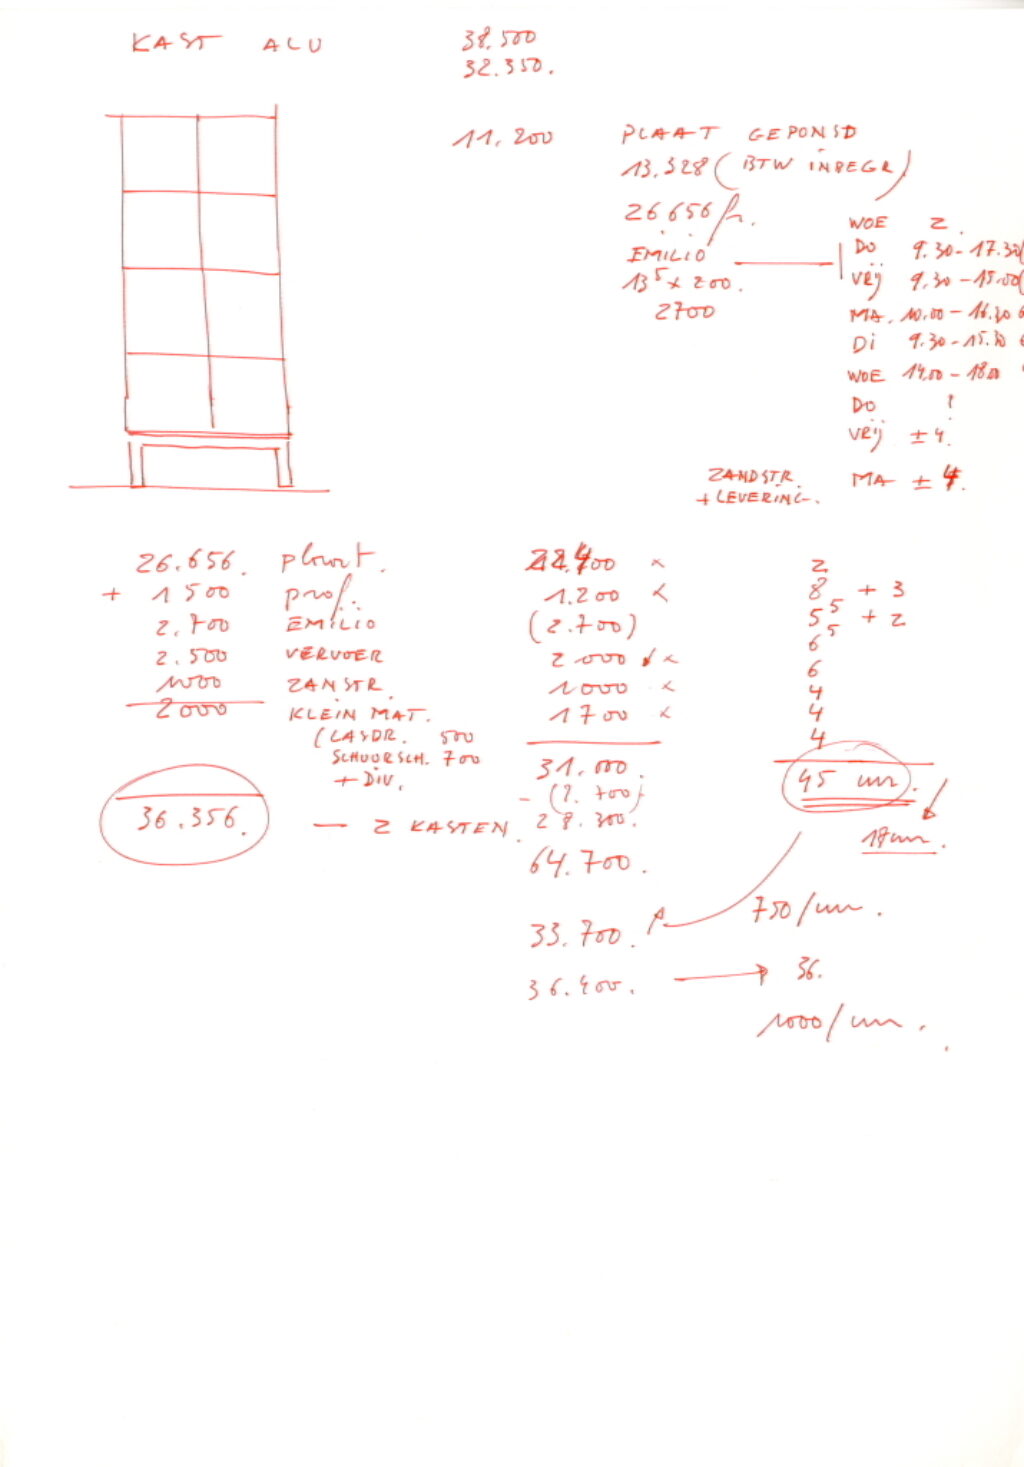 KAST ALU
38.500
32.350.
11.200
PLAAT GEPONSD
13.328 (BTW INBEGR)
26.656 fr.
EMILIO
13⁵ x 200.
2700
WOE 2.
DO 9.30-17.30(
VRIJ 9.30-15.00(
MA. 10.00-16.30 6
DI 9.30-15.30 6
WOE 14.00-18.00
DO !
VRIJ ± 4.
ZANDSTR. MA ± 4.
+ LEVERING.
26.656. plaat.
+ 1 500 prof.
2.700 EMILIO
2.500 VERVOER
1000 ZANSTR.
2000 KLEIN MAT.
(LASDR. 500
SCHUURSCH. 700
+ DIV.
36.356. — 2 KASTEN.
.400 x
1.200 x
(2.700)
2000 x
1000 x
1700 x
31.000.
- (2.700)
28.300.
64.700.
33.700.
36.400. → 36.
2
8 + 3
5⁵ + 2
6⁵
6
4
4
4
45 uur.
uur.
750/uur.
1000/uur.